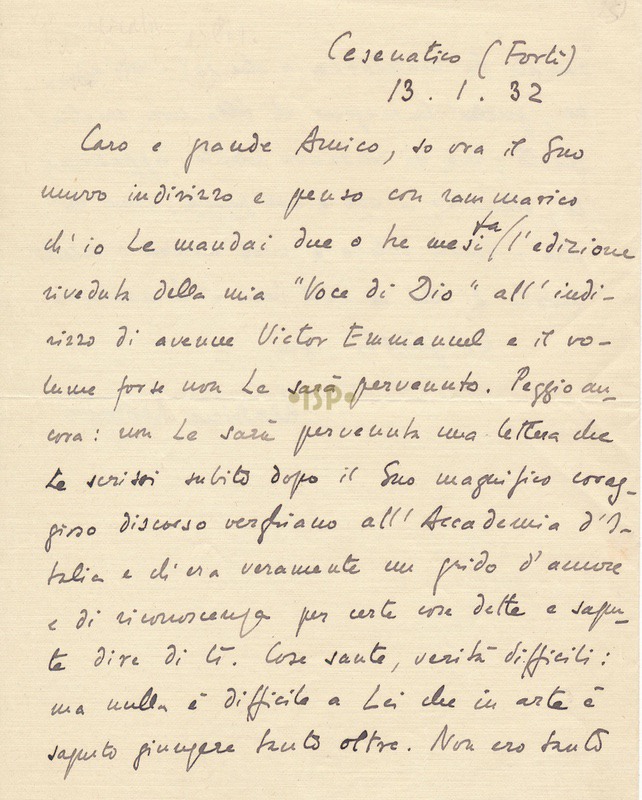 Cesenatico (Forlì)
13. 1. 32
Caro e grande Amico, so ora il Suo
nuovo indirizzo e penso con rammarico
ch'io Le mandai due o tre mesi fa l'edizione
riveduta della mia "Voce di Dio" all'indi-
rizzo di avenue Victor Emmanuel e il vo-
lume forse non Le sarà pervenuto. Peggio an-
cora: non Le sarà pervenuta una lettera che
Le scrissi subito dopo il Suo magnifico corag-
gioso discorso verghiano all'Accademia d'I-
talia e ch'era veramente un grido d'amore
e di riconoscenza per certe cose dette e sapu-
te dire di lì. Cose sante, verità difficili:
ma nulla è difficile a Lei che in arte è
saputo giungere tanto oltre. Non ero tanto
•ISP•